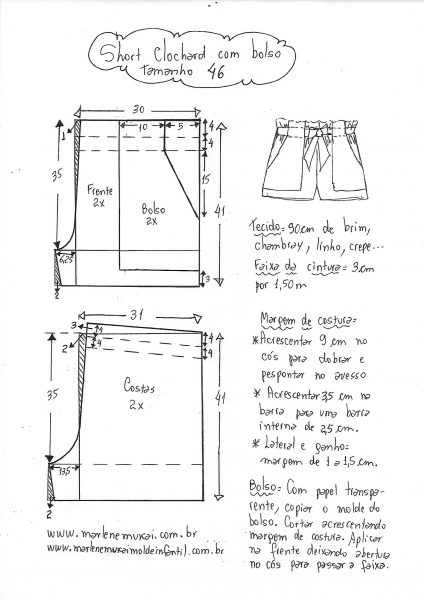 Short Clochard com bolso
tamanho 46
30
10
5
1
4
4
35
15
41
Frente
2x
Bolso
2x
6,25
3
2
Tecido = 90 cm de brim,
chambray, linho, crepe...
Faixa da cintura = 3 cm
por 1,50 m
31
3
4
4
4
4
2
35
41
Costas
2x
13,5
2
Margem de costura =
* Acrescentar 9 cm no
cós para dobrar e
pespontar no avesso
* Acrescentar 3,5 cm na
barra para uma barra
interna de 2,5 cm.
* Lateral e ganho =
margem de 1 a 1,5 cm.
Bolso = Com papel transpa-
rente, copiar o molde do
bolso. Cortar acrescentando
margem de costura. Aplicar
na frente deixando abertura
no cós para passar a faixa.
www.marlenemukai.com.br
www.marlenemukaimoldeinfantil.com.br